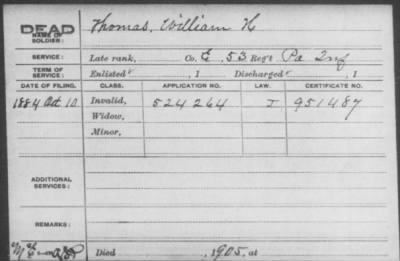 DEAD
NAME OF SOLDIER:
Thomas, William H
SERVICE: Late rank, Co. E, 53 Reg't Pa Inf
TERM OF SERVICE: Enlisted , 1 Discharged , 1
DATE OF FILING. CLASS. APPLICATION NO. LAW. CERTIFICATE NO.
1884 Oct 10 Invalid, 524264 J 951487
Widow,
Minor,
ADDITIONAL SERVICES:
REMARKS:
Died , 1905, at